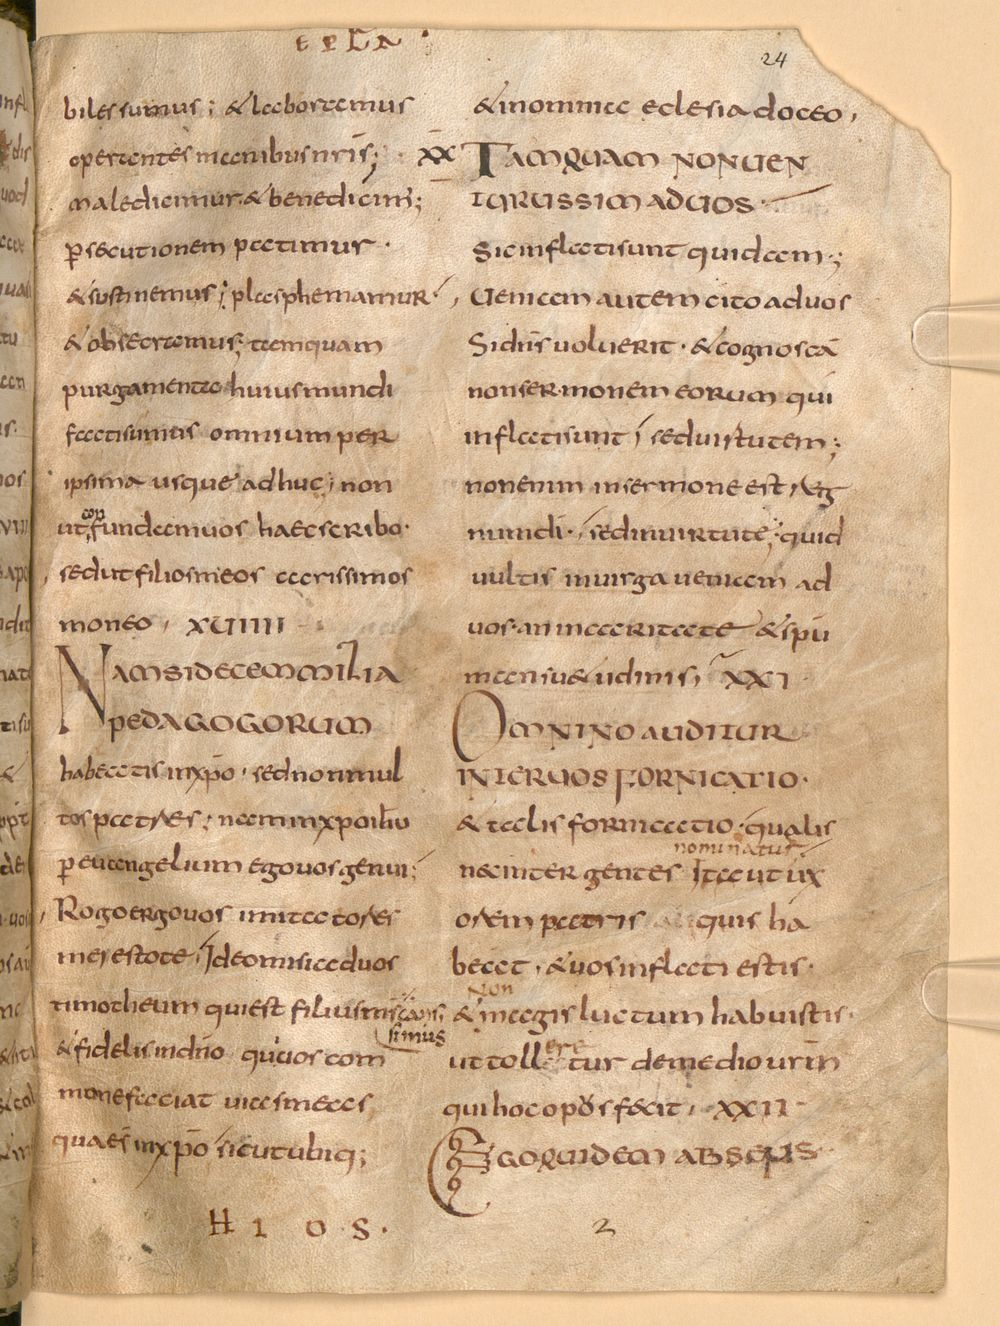 EPLA
24
biles sumus ; & laboramus
operantes manibus nr̄is ;
maledicimur & benedicim̄ ;
p̄secutionem patimur ·
& sustinemus ; plasphemamur ·
& obsecramus ; tamquam
purgamenta huius mundi
facti sumus omnium per
ipsima usque adhuc ; non
ut con fundam uos haec scribo ·
sed ut filios meos carissimos
moneo , XVIIII
NAM SI DECEM MILIA
PEDAGOGORUM
habeatis in xp̄o · sed non mul
tos patres ; nam in xp̄o ih̄u
p̄ euangelium ego uos genui ;
Rogo ergo uos imitatores
mei estote , Ideo misi ad uos
timotheum qui est filius m̄s caris
simus
& fidelis in dn̄o qui uos com
mone faciat uias meas
quae s̄ in xp̄o sicut ubiq ;
H I O S ·
& in omni eclesia doceo ,
XX TAMQUAM NON UEN
TURUS SIM AD UOS ·
Sic inflati sunt quidam ;
Ueniam autem cito ad uos
Si dn̄s uoluerit · & cognoscā
non sermonem eorum qui
inflati sunt , sed uirtutem ;
non enim in sermone est reg
num di · , sed in uirtute ; quid
uultis in uirga ueniam ad
uos · an in caritate & sp̄u
mansu&udinis , XXI
OMNINO AUDITUR
INTER UOS FORNICATIO ·
& talis fornicatio · qualis
nominatur
nec inter gentes Ita ut ux
orem patris aliquis ha
beat , & uos inflati estis ·
non
& magis luctum habuistis ·
ut toll ere tur de medio ur̄m
qui hoc opus fecit , XXII
EGO QUIDEM ABSENS
2